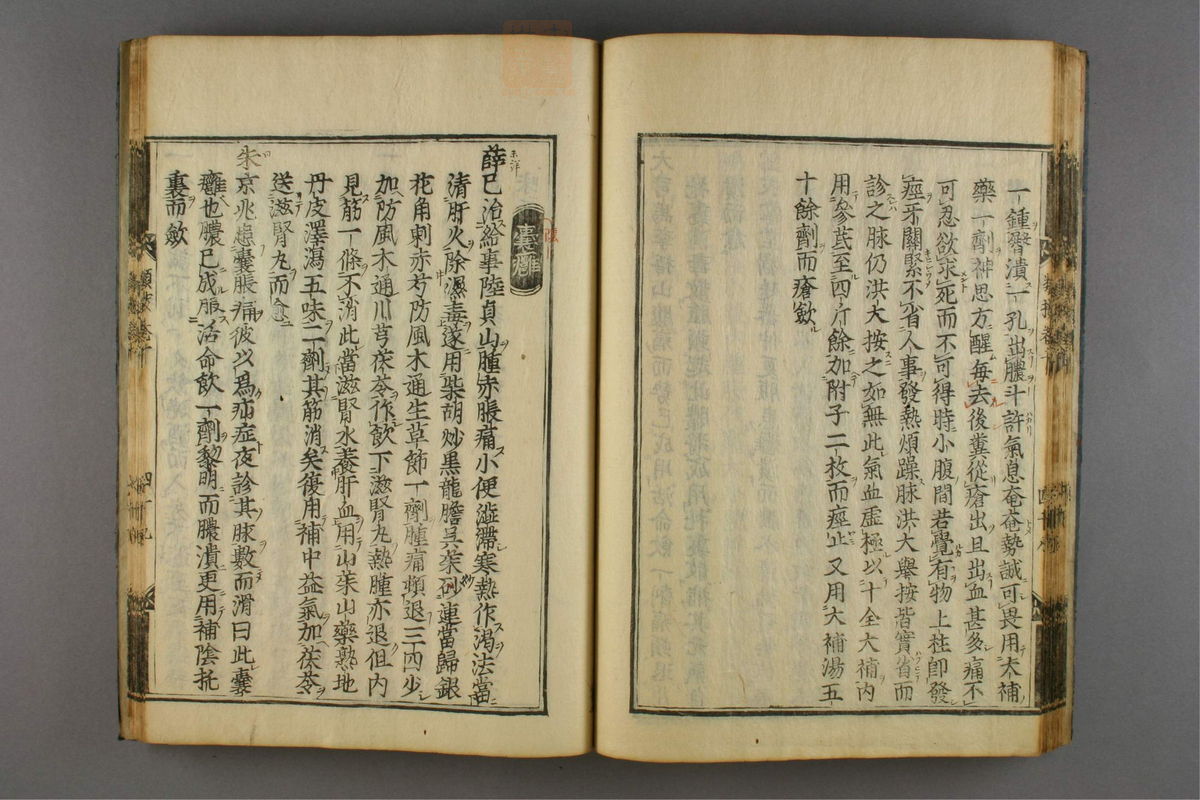 一鍾臀潰一孔出膿斗許氣息奄奄勢誠可畏用大補
藥一劑神思方醒每去後糞從瘡出且出血甚多痛不
可忍欲求死而不可得時小腹間若覺有物上柱卽發
痙牙關緊不省人事發熱煩躁脉洪大舉按皆實省而
診之脉仍洪大按之如無此氣血虛極以十全大補內
用參芪至四斤餘加附子二枚而痙止又用大補湯五
十餘劑而瘡歛
囊癰
薛己治給事陸貞山腫赤脹痛小便澁滯寒熱作渴法當
清肝火除濕毒遂用柴胡炒黑龍膽吳茱炒連當歸銀
花角刺赤芍防風木通生草節一劑腫痛頓退三四少
加防風木通川芎茯苓作飮下滋腎丸熱腫亦退但內
見筋一條不消此當滋腎水養肝血用山茱山藥熟地
丹皮澤瀉五味二劑其筋消矣復用補中益氣加茯苓
送滋腎丸而愈
朱京兆患囊脹痛彼以爲疝症夜診其脉數而滑曰此囊
癰也膿已成服活命飮一劑黎明而膿潰更用補陰托
裏而歛